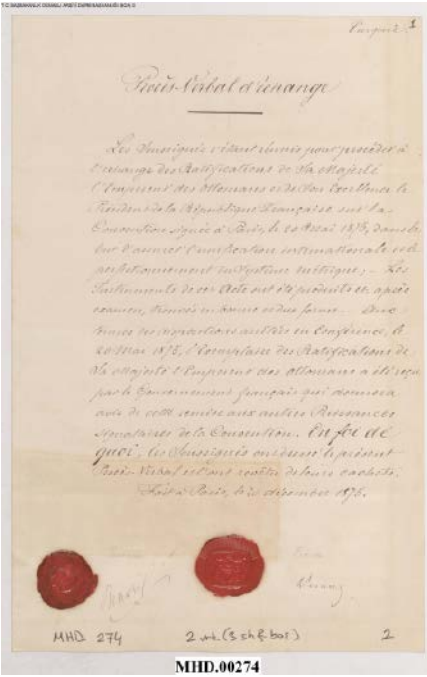 T.C. BAŞBAKANLIK OSMANLI ARŞİVİ DAİRE BAŞKANLIĞI (BOA)
Turquie 1
Procès-Verbal d'échange
Les Soussignés s'étant réunis pour procéder à
l'échange des Ratifications de Sa Majesté
l'Empereur des Ottomans et de Son Excellence le
Président de la République Française sur la
Convention signée à Paris, le 20 Mai 1875, dans le
but d'assurer l'unification internationale et le
perfectionnement du Système métrique; - Les
Instruments de ces Actes ont été produits et après
examen, trouvés en bonne et due forme.
termes des arrêtées en Conférence, le
20 Mai 1875, l'Exemplaire des Ratifications de
Sa Majesté l'Empereur des Ottomans a été reçu
par le Gouvernement français qui donnera
avis de cette remise aux autres Puissances
signataires de la Convention. En foi de
quoi, les Soussignés ont dressé le présent
Procès-Verbal et l'ont revêtu de leurs cachets.
Fait à Paris, le décembre 1875.
MHD 274 2
MHD.00274